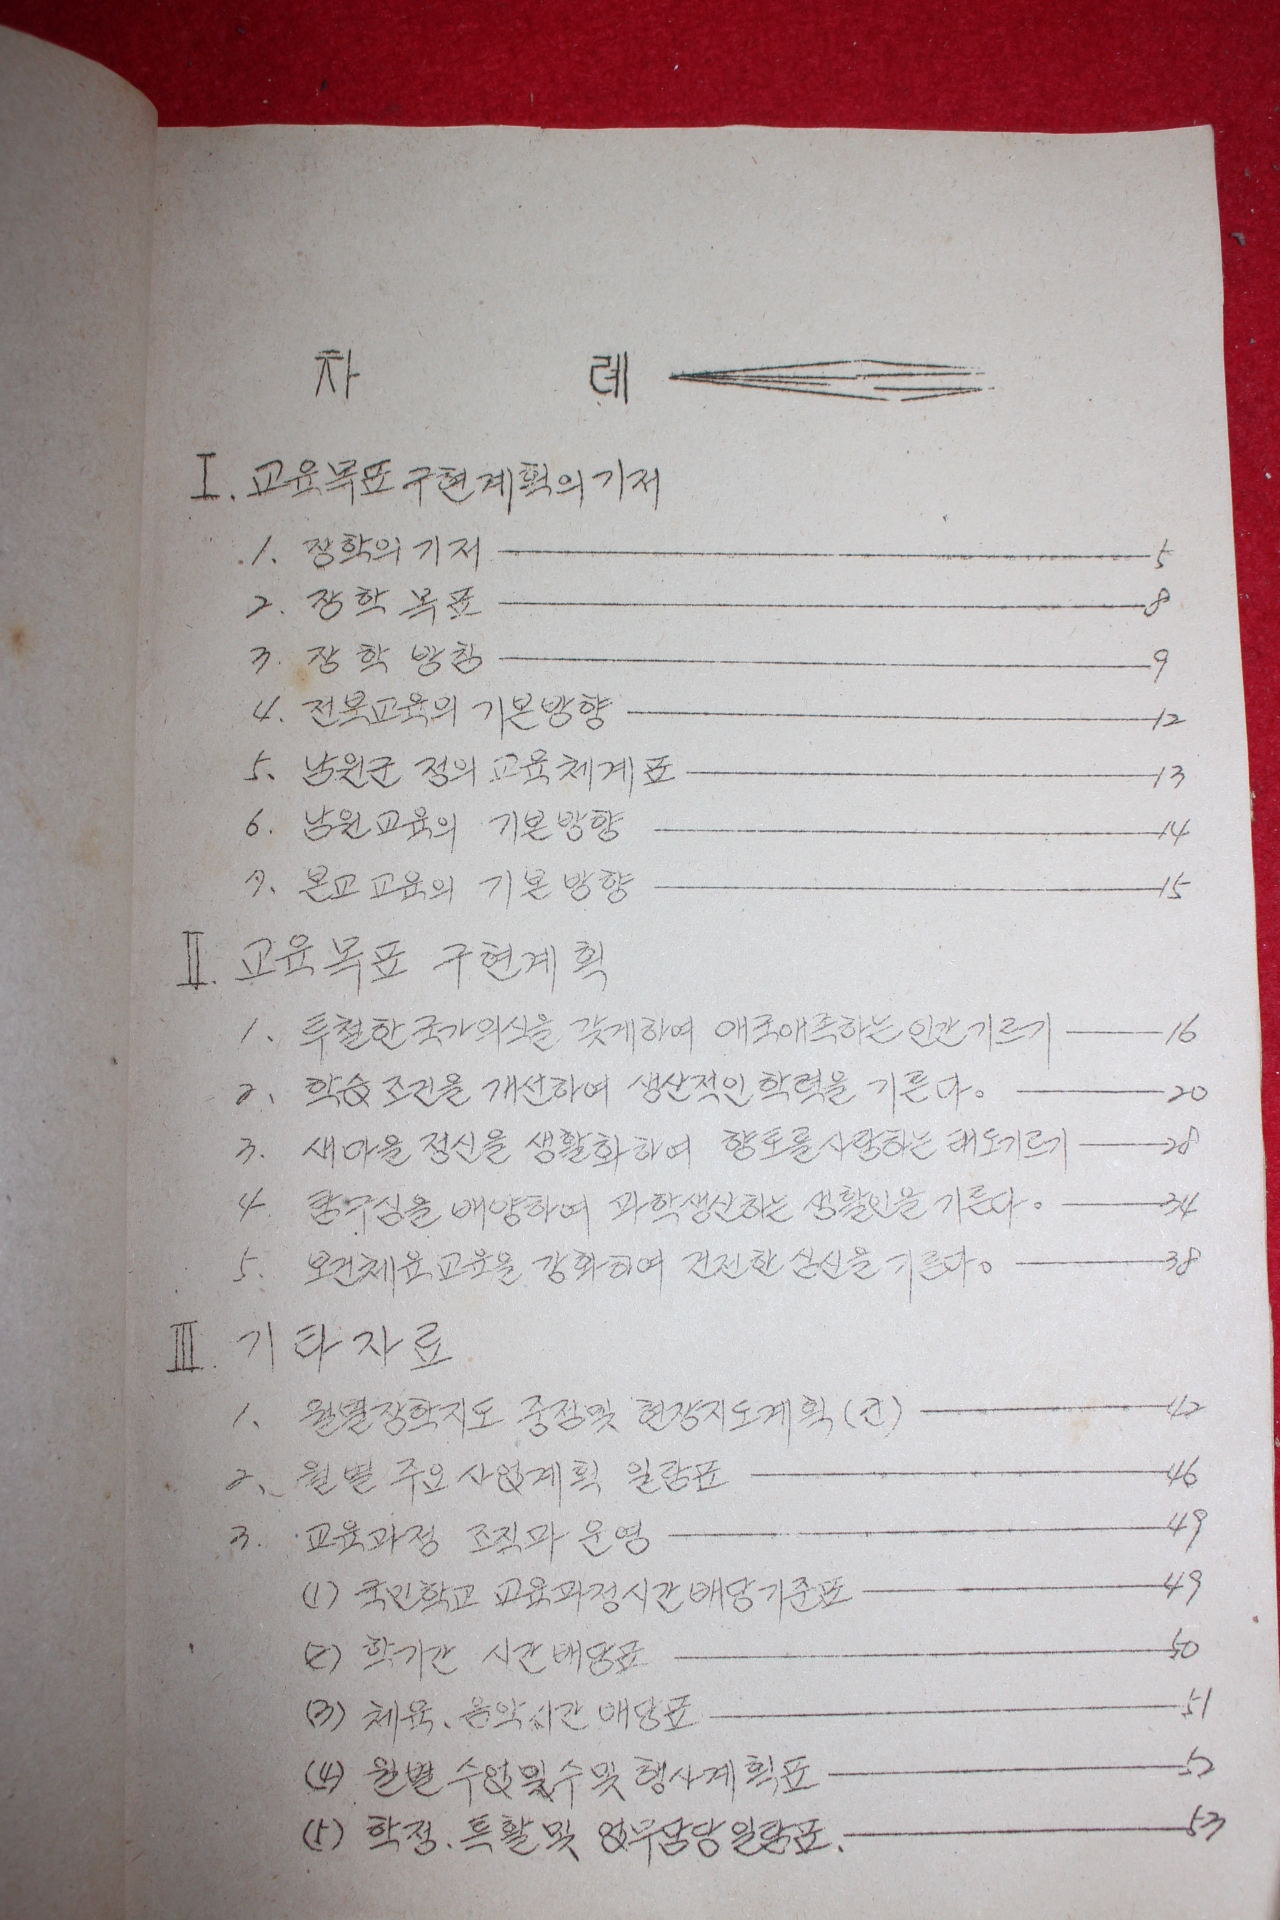 차 례
I. 교육목표 구현계획의 기저
1. 장학의 기저 5
2. 장학 목표 8
3. 장학 방침 9
4. 전북교육의 기본방향 12
5. 남원군 정의 교육체계표 13
6. 남원교육의 기본방향 14
7. 본교교육의 기본방향 15
II. 교육목표 구현계획
1. 투철한 국가의식을 갖게하여 애국애족하는 인간기르기 16
2. 학습조건을 개선하여 생산적인 학력을 기른다. 20
3. 새마을 정신을 생활화하여 향토를 사랑하는 태도기르기 28
4. 탐구심을 배양하여 과학생산하는 생활인을 기른다. 34
5. 보건체육교육을 강화하여 건전한 심신을 기른다. 38
III. 기타자료
1. 월별장학지도 중점및 현장지도계획 42
2. 월별 주요사업계획 일람표 46
3. 교육과정 조직과 운영 49
(1) 국민학교 교육과정시간배당기준표 49
(2) 학기간 시간배당표 50
(3) 체육、음악시간배당표 51
(4) 월별 수업일수및 행사계획표 52
(5) 학정、특활및 업무분담당일람표. 53